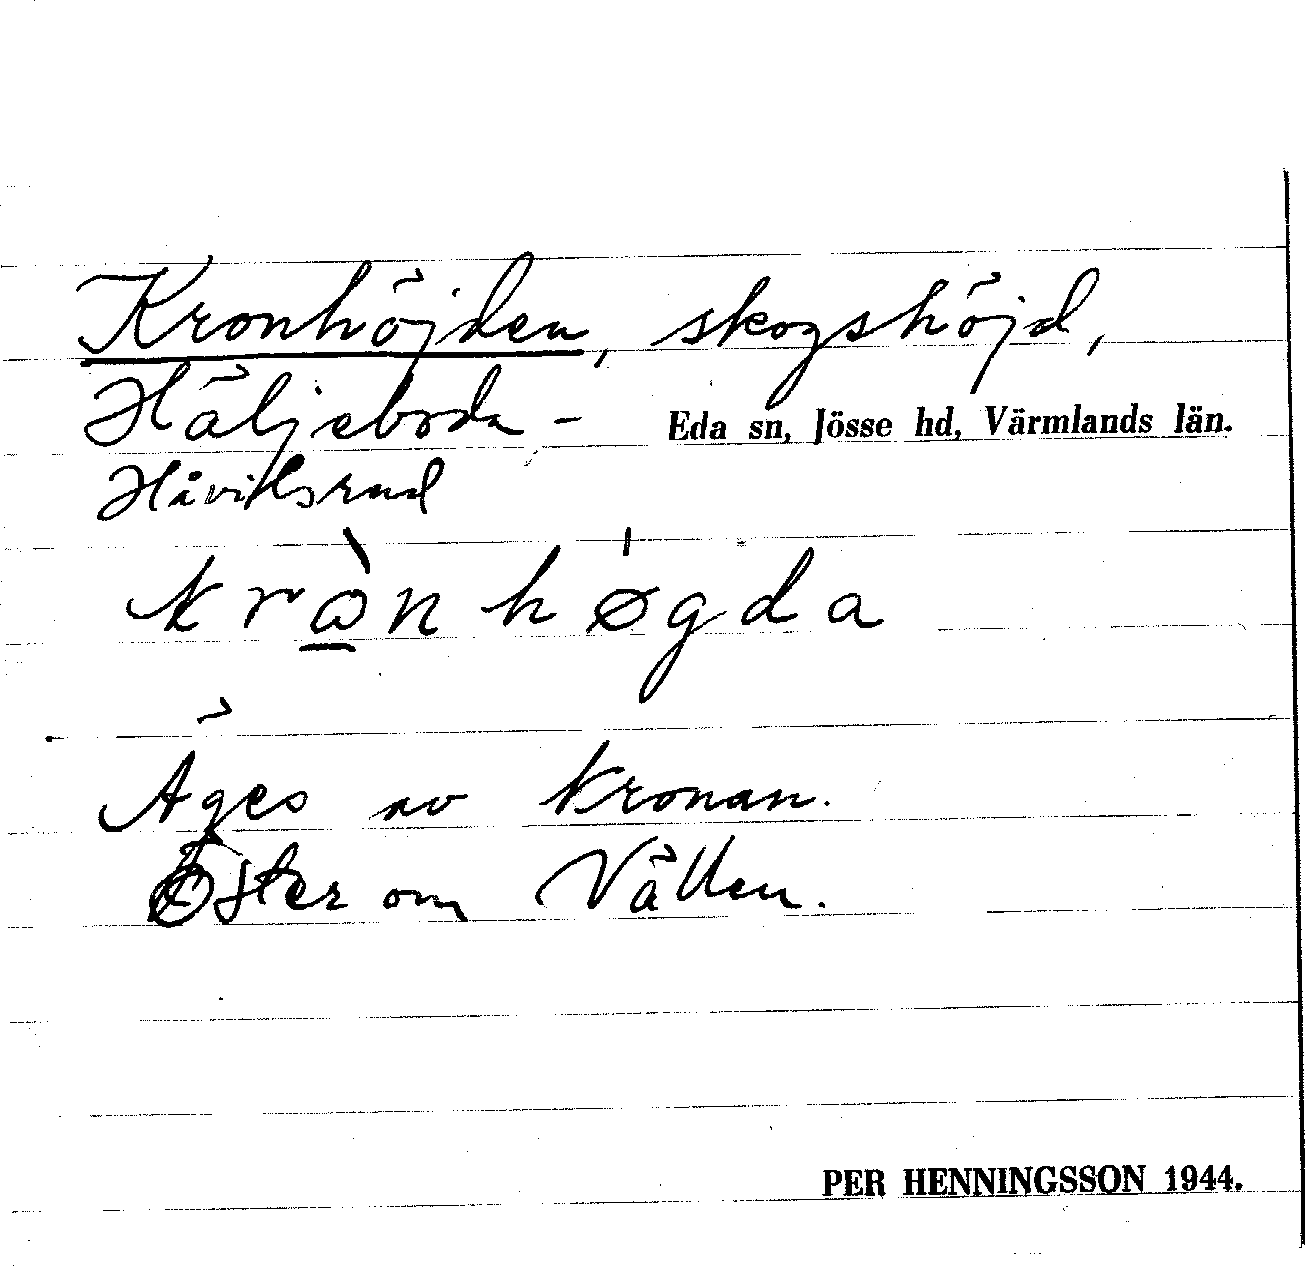 Kronhöjden, skogshöjd,
Häljeboda - Eda sn, Jösse hd, Värmlands län.
Håvilsrud
krὼ̲nhø̍gda
Äges av Kronan.
Öster om Vällen.
PER HENNINGSSON 1944.